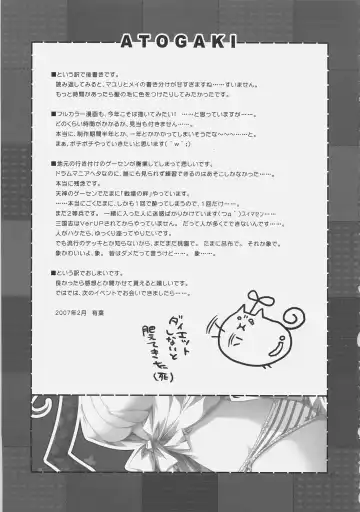 ATOGAKI
■という訳で後書きです。
読み返してみると、マユリとメイの書き分けが甘すぎますね……すいません。
もっと時間があったら髪の毛に色をつけたりしてみたかったです。
■フルカラー漫画も、今年こそは描いてみたい!　……と思っていますが……。
どのくらい時間がかかるか、見当も付きません。
本当に、制作期間半年とか、一年とかかかってしまいそうだな〜〜〜……と。
まぁ、ボチボチやっていきたいと思います(´ｗ`;)
■地元の行き付けのゲーセンが廃業してしまって悲しいです。
ドラムマニアヘタなのに、誰にも見られず練習できるのはあそこしかなかった…。
本当に残念です。
天神のゲーセンでたまに「戦場の絆」やっています。
……本当にごくたまに、しかも1回で酔ってしまうので、1回だけ……。
まだ2等兵です。　一緒に入った人に迷惑ばかりかけています(つд`)スイマセン…
三国志はVerUPされてからやっていません。　だって人が多くてできないんです…。
人がハケたら、ゆっくり座ってやりたいです。
でも流行のデッキとか知らないから、まだまだ桃園で。　たまに呂布で。　それか象で。
象かわいいよ、象。　皆はダメだって言うけど…。　象……。
■という訳でおしまいです。
良かったら感想とか聞かせて貰えると嬉しいです。
ではでは、次のイベントでお会いできましたら……。
2007年2月　有葉
ダイエット
しないと
肥えてきた
(死)